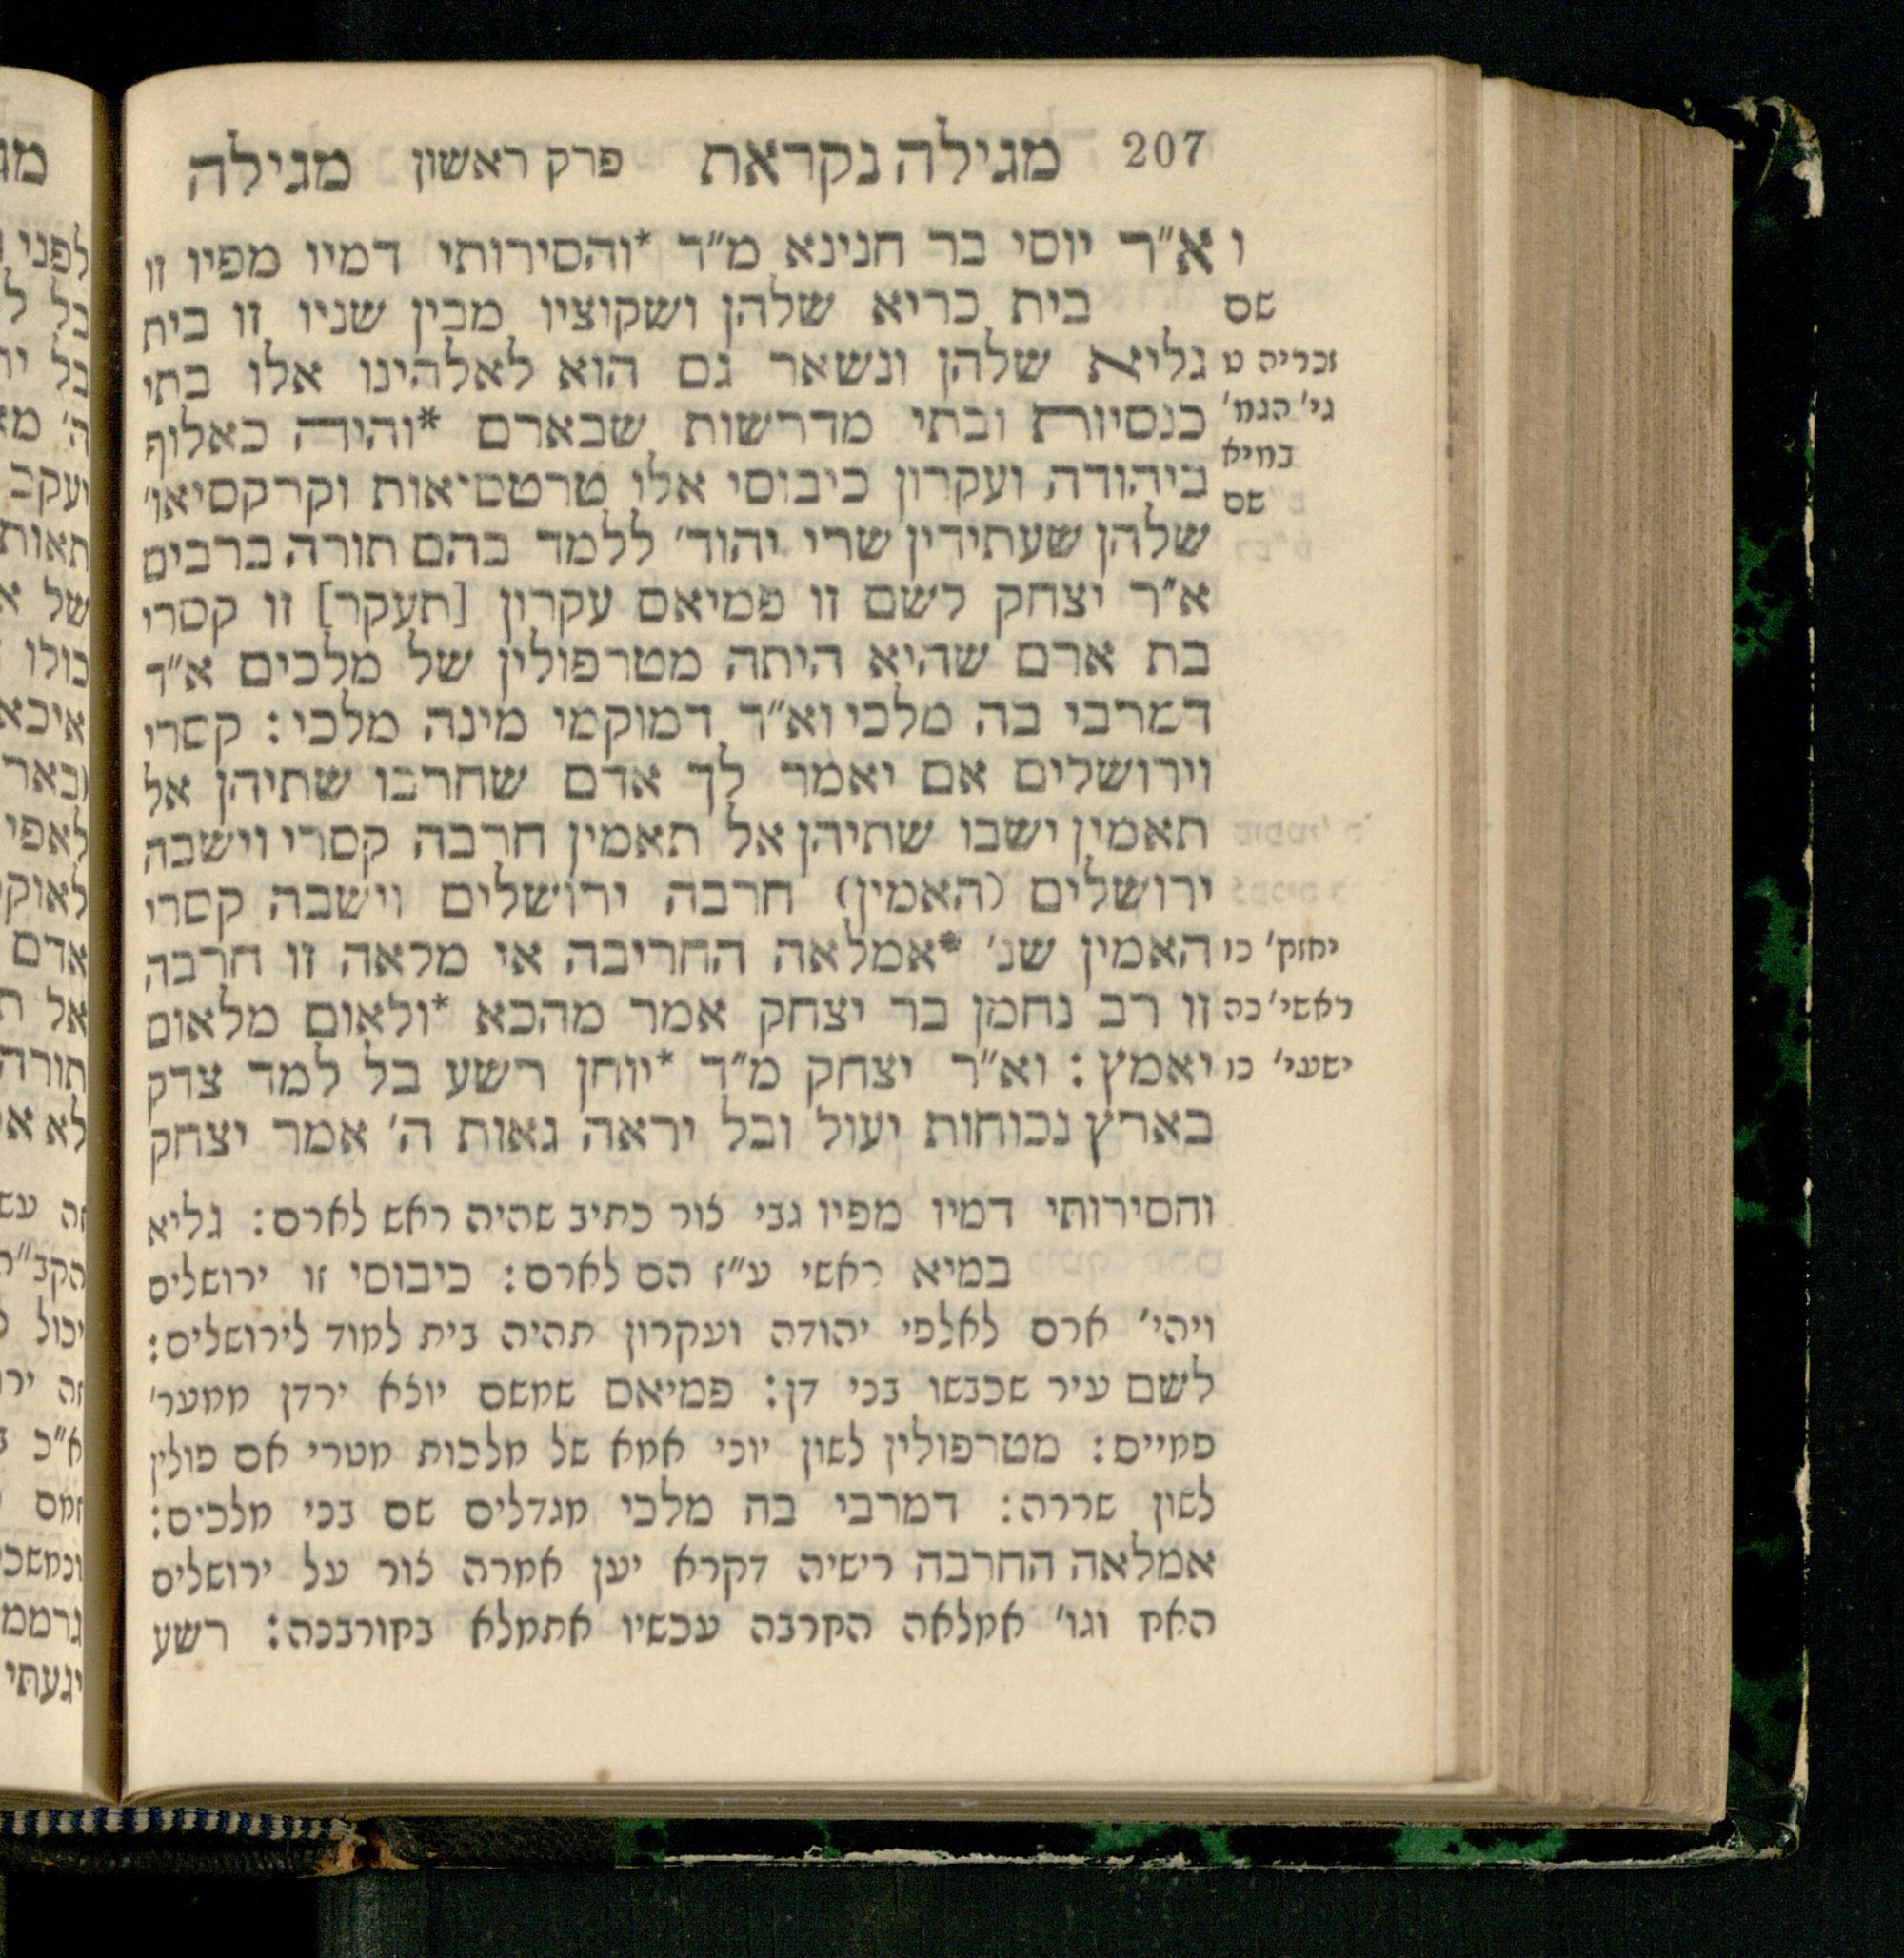 207 מגילה נקראת פרק ראשון מגילה
ו א״ר יוסי בר חנינא מ״ד *והסירותי דמיו מפיו זו
שם בית כריא שלהן ושקוציו מבין שניו זו בית
זכריה ט גליא שלהן ונשאר גם הוא לאלהינו אלו בתי
גי׳ הגמ׳ כנסיות ובתי מדרשות שבארם *והיה כאלוף
במיא
ביהודה ועקרון כיבוסי אלו טרטסיאות וקרקסיאו׳
שם
שלהן שעתידין שרי יהוד׳ ללמד בהם תורה ברבים
א״ר יצחק לשם זו פמיאס עקרון [תעקר] זו קסרי
בת ארם שהיא היתה מטרפולין של מלכים א״ד
דמרבי בה מלכי וא״ד דמוקמי מינה מלכי: קסרי
וירושלים אם יאמר לך אדם שחרבו שתיהן אל
תאמין ישבו שתיהן אל תאמין חרבה קסרי וישבה
ירושלים (האמין) חרבה ירושלים וישבה קסרי
יחזק׳ כו האמין שנ׳ *אמלאה החריבה אי מלאה זו חרבה
ראשי׳ כה זו רב נחמן בר יצחק אמר מהכא *ולאום מלאום
ישעי׳ כו יאמץ: וא״ר יצחק מ״ד *יוחן רשע בל למד צדק
בארץ נכוחות יעול ובל יראה גאות ה׳ אמר יצחק
והסירותי דמיו מפיו גבי צור כתיב שהיה ראש לארם: גליא
במיא ראשי ע״ז הם לארם: כיבוסי זו ירושלים
ויהי׳ ארם לאלפי יהודה ועקרון תהיה בית למוד לירושלים:
לשם עיר שכבשו בני דן: פמיאס שמשם יוצא ירדן ממער׳
פמייס: מטרפולין לשון יוני אמא של מלכות מטרי אם פולין
לשון שררה: דמרבי בה מלכי מגדלים שם בני מלכים:
אמלאה החרבה רישיה דקרא יען אמרה צור על ירושלים
האח וגו׳ אמלאה החרבה עכשיו אתמלא בחורבנה: רשע